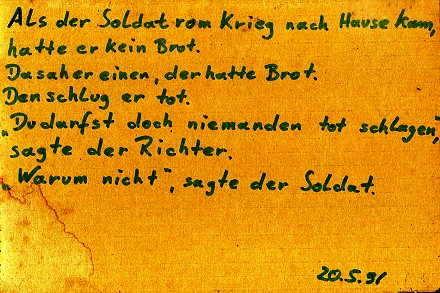 Als der Soldat vom Krieg nach Hause kam,
hatte er kein Brot.
Da sah er einen, der hatte Brot.
Den schlug er tot.
„Du darfst doch niemanden tot schlagen",
sagte der Richter.
„Warum nicht", sagte der Soldat.
20.5.91